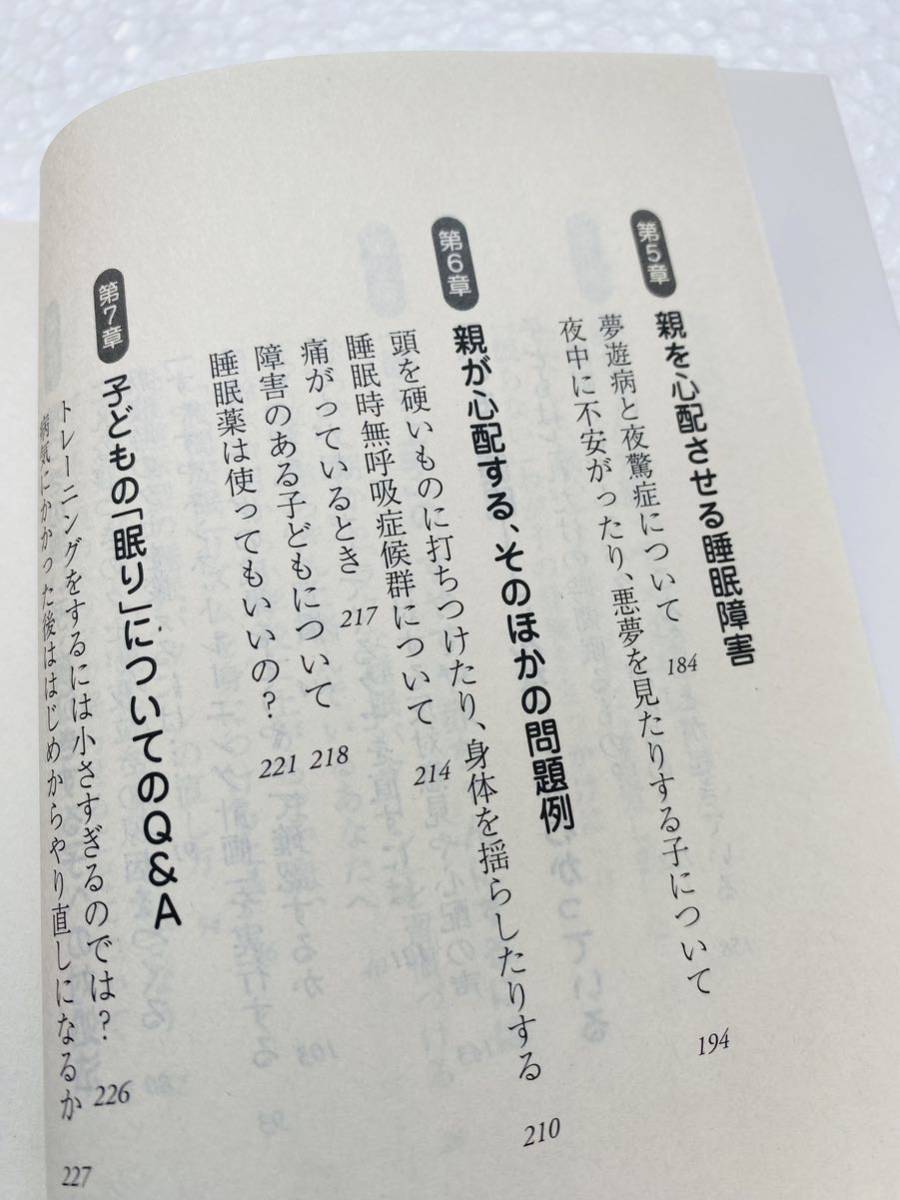 第5章 親を心配させる睡眠障害
夢遊病と夜驚症について 184
夜中に不安がったり、悪夢を見たりする子について 194
第6章 親が心配する、そのほかの問題例
頭を硬いものに打ちつけたり、身体を揺らしたりする 210
睡眠時無呼吸症候群について 214
痛がっているとき 217
障害のある子どもについて 218
睡眠薬は使ってもいいの？ 221
第7章 子どもの「眠り」についてのQ&A
トレーニングをするには小さすぎるのでは？ 226
病気にかかった後ははじめからやり直しになるか 227